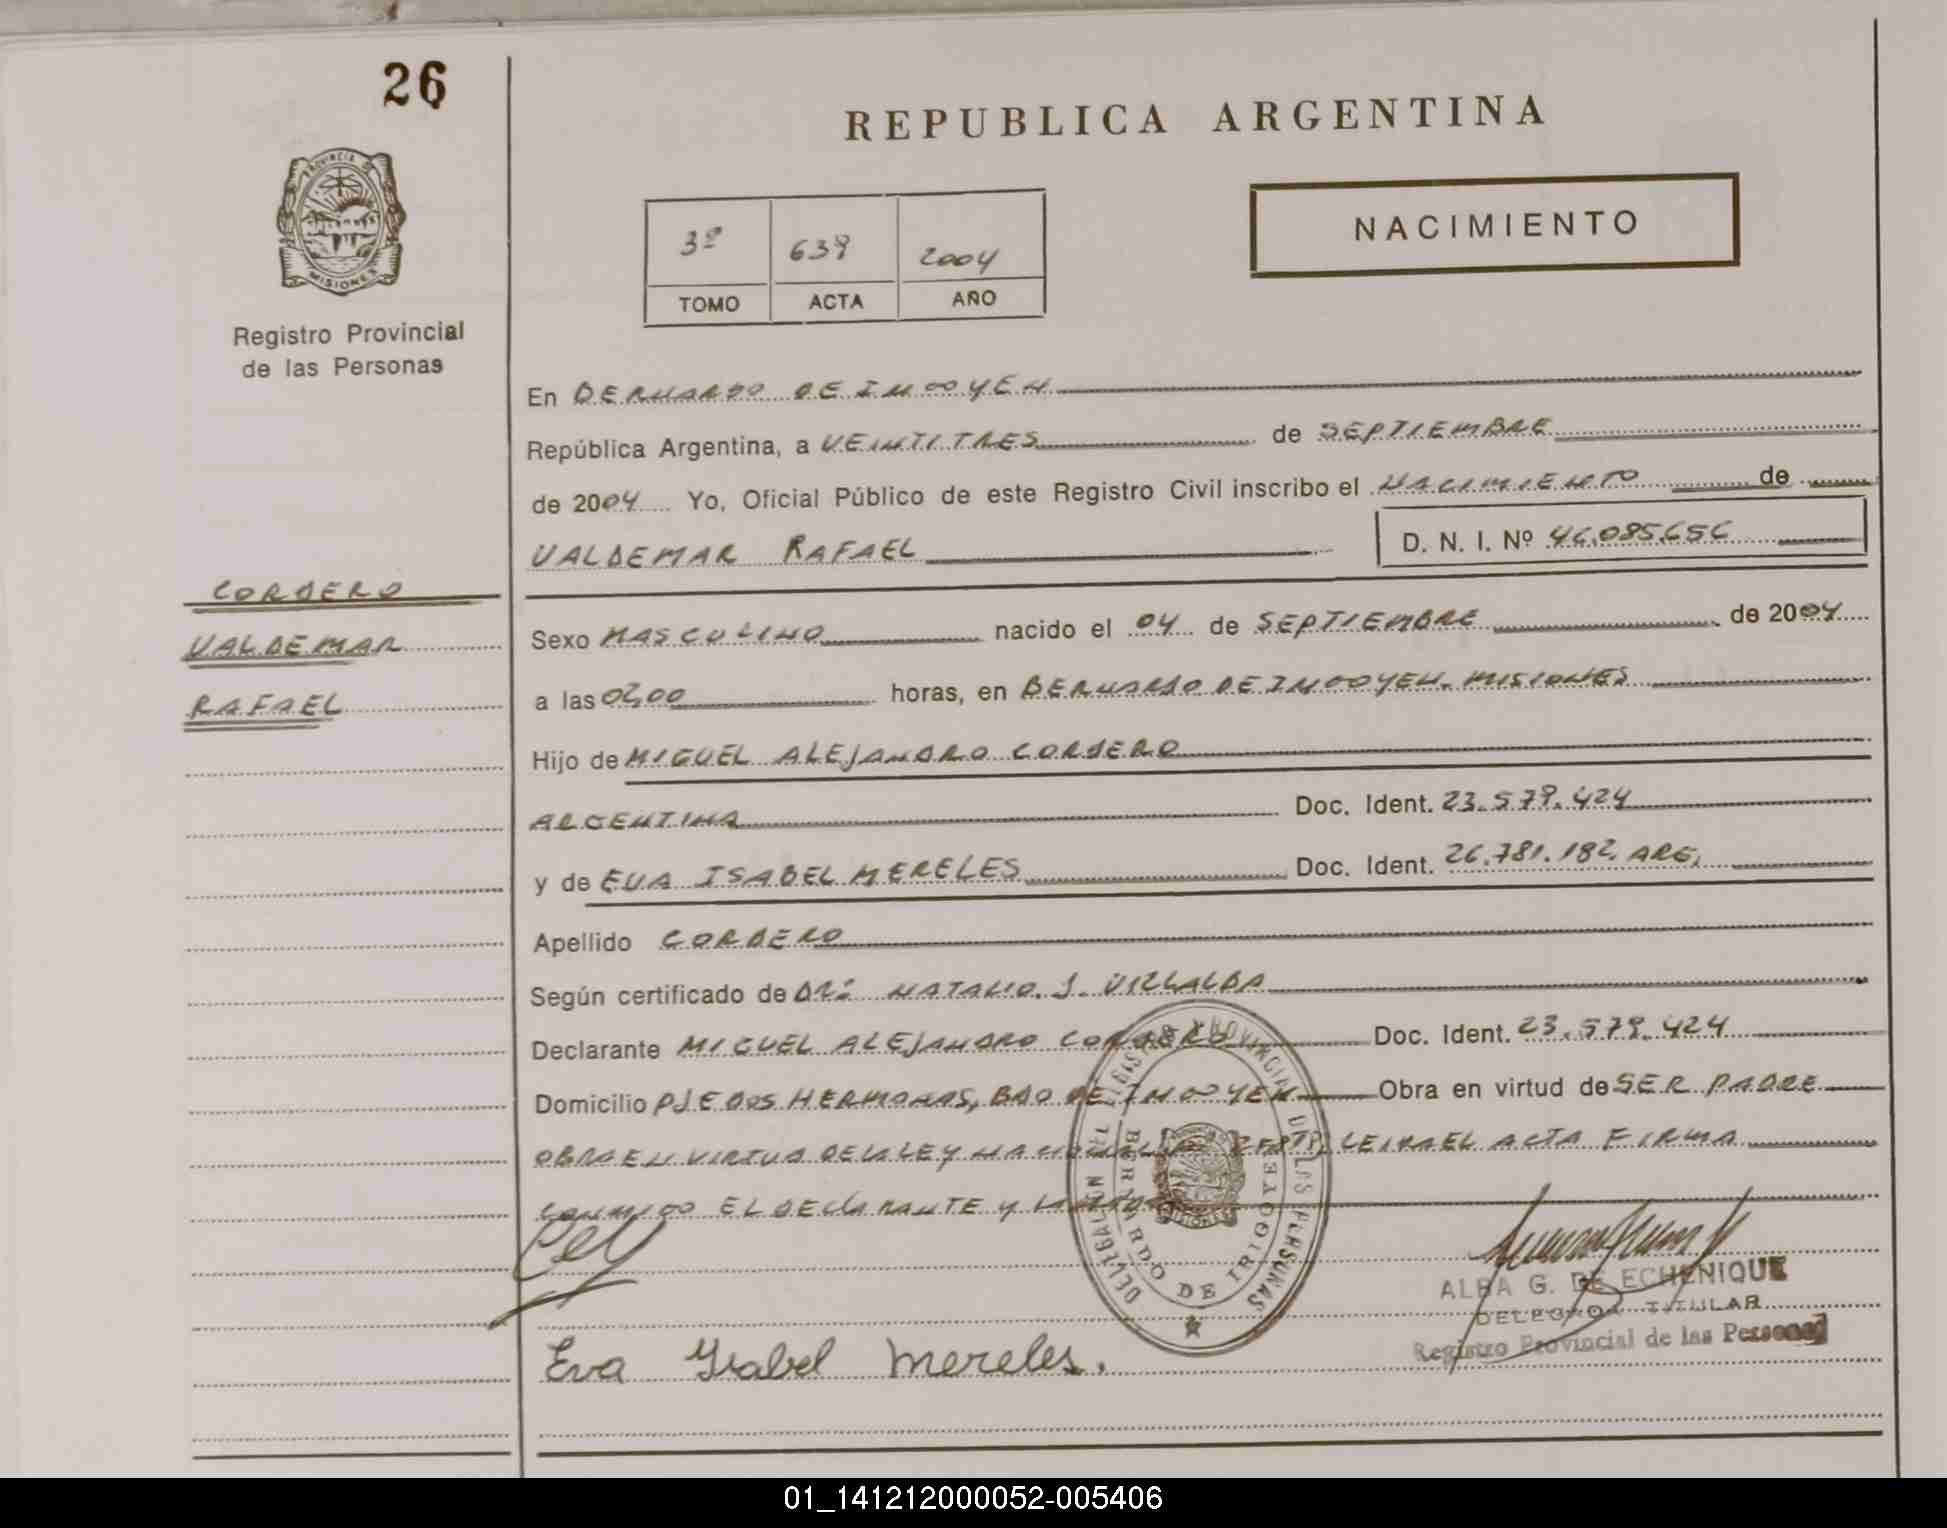 26
REPUBLICA ARGENTINA
PROVINCIA DE
MISIONES
Registro Provincial
de las Personas
NACIMIENTO
3º 639 2004
TOMO ACTA AÑO
En BERNARDO DE IRIGOYEN
República Argentina, a VEINTITRES de SEPTIEMBRE
de 2004 Yo, Oficial Público de este Registro Civil inscribo el NACIMIENTO de
VALDEMAR RAFAEL D. N. I. Nº 46.085.656
CORDERO
VALDEMAR
RAFAEL
Sexo MASCULINO nacido el 04 de SEPTIEMBRE de 2004
a las 02,00 horas, en BERNARDO DE IRIGOYEN. MISIONES
Hijo de MIGUEL ALEJANDRO CORDERO
ARGENTINA Doc. Ident. 23.579.424
y de EVA ISABEL MERELES Doc. Ident. 26.781.182 ARG.
Apellido CORDERO
Según certificado de DR: NATALIO J. VILLALBA
Declarante MIGUEL ALEJANDRO CORDERO Doc. Ident. 23.579.424
Domicilio PJE DOS HERMANAS, BDO DE IRIGOYEN Obra en virtud de SER PADRE
OBRA EN VIRTUD DE LA LEY NACIONAL LEIDA EL ACTA FIRMA
CONMIGO EL DECLARANTE Y LA MADRE
BERNARDO DE IRIGOYEN
MISIONES
ALBA G. DE ECHENIQUE
DELEGADA TITULAR
Registro Provincial de las Personas
Eva Ysabel Mereles.
01_141212000052-005406